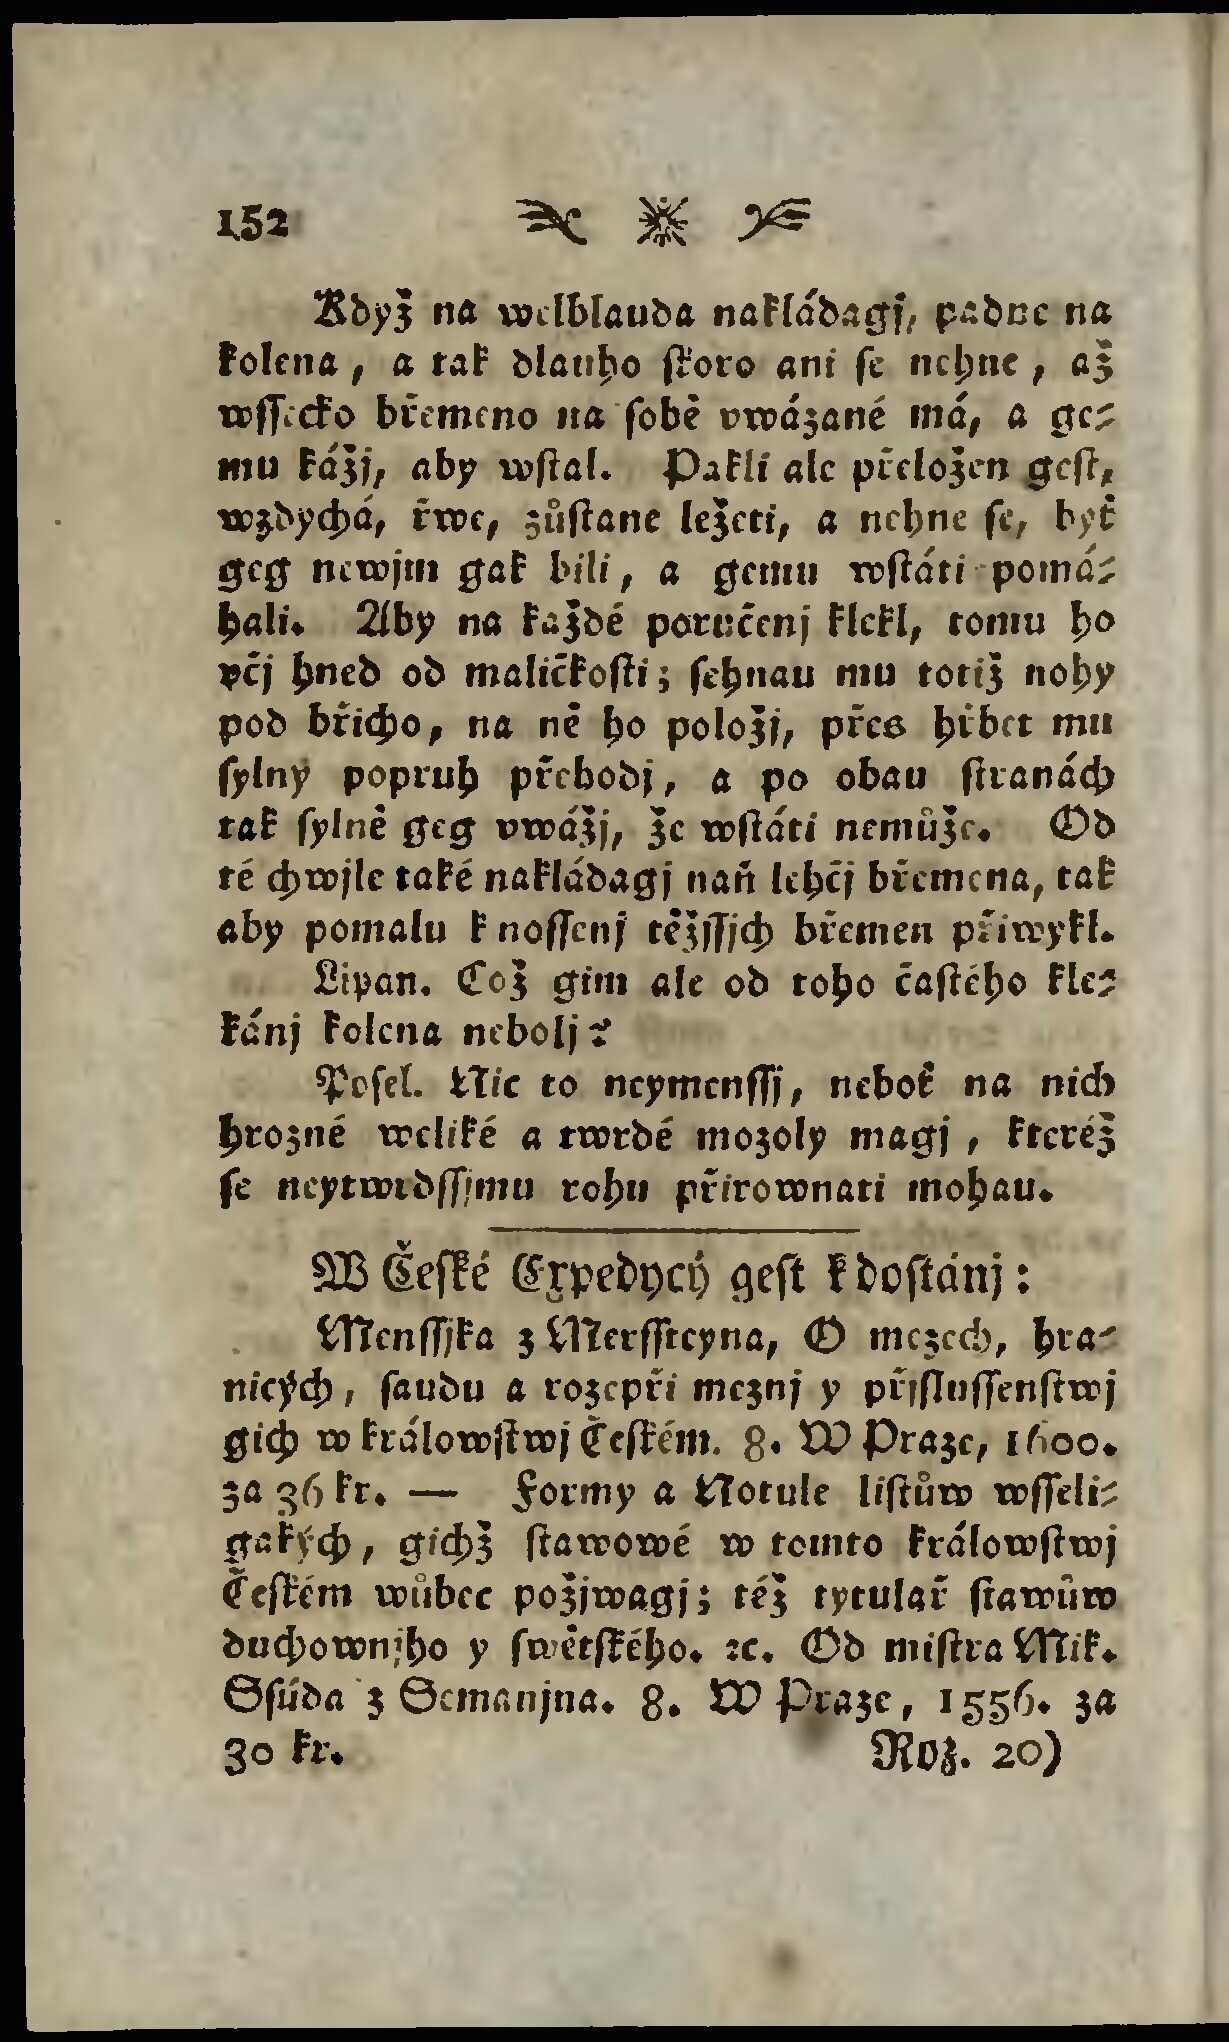 152
Když na welblauda nakládagj, padne na
kolena, a tak dlauho ſkoro ani ſe nehne, až
wſſecko břemeno na ſobě vwázané má, a ge⸗
mu kážj, aby wſtal. Pakli ale přeložen geſt,
wzdychá, řwe, zůſtane ležeti, a nehne ſe, byť
geg newjm gak bili, a gemu wſtáti pomá⸗
hali. Aby na každé poručenj klekl, tomu ho
včj hned od maličkoſti; ſehnau mu totiž nohy
pod břicho, na ně ho položj, přes hřbet mu
ſylný popruh přehodj, a po obau ſtranách
tak ſylně geg vwážj, že wſtáti nemůže. Od
té chwjle také nakládagj naň lehčj břemena, tak
aby pomalu k noſſenj těžjſſjch břemen přiwykl.
Lipan. Což gim ale od toho častého kle⸗
kánj kolena nebolj?
Poſel. Nic to neymenſſj, neboť na nich
hrozné weliké a twrdé mozoly magj, kteréž
ſe neytwrdſſjmu rohu přirownati mohau.
W České Expedycý geſt k doſtánj:
Menſſjka z Merſſteyna, O mezech, hra⸗
nicých, ſaudu a rozepři meznj y přjſluſſenſtwj
gich w králowſtwj Českém. 8. W Praze, 1600.
za 36 kr. — Formy a Notule liſtůw wſſeli⸗
gakých, gichž ſtawowé w tomto králowſtwj
Českém wůbec požjwagj; též tytulař ſtawůw
duchownjho y ſwětſkého. ꝛc. Od miſtra Mik.
Sſúda z Semanjna. 8. W Praze, 1556. za
30 kr.
Roz. 20)